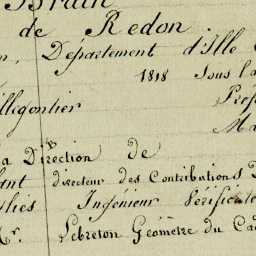 de Redon
Département d'Ille
1818 Sous l'a
illegontier Préf
Ma
la Direction de
directeur des Contributions D
Ingénieur Vérificate
Mr. Lebreton Géomètre du Ca